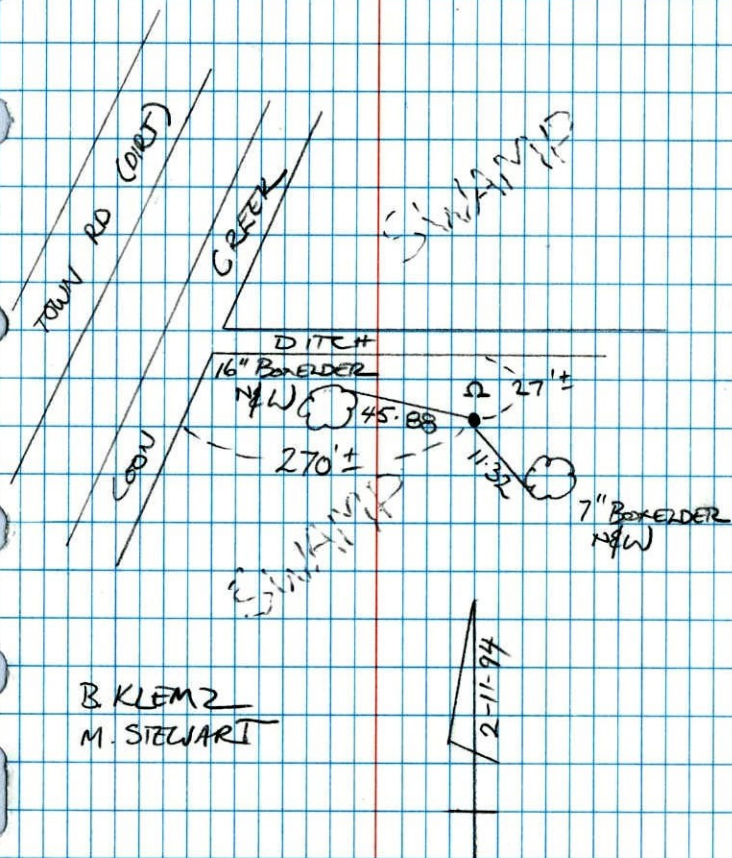 TOWN RD (DIRT)
COON CREEK
SWAMP
DITCH
16" BOXELDER
N&W
45.88
Ω
27'±
270'±
11.32
7" BOXELDER
N&W
SWAMP
2-11-94
B. KLEMZ
M. STEWART